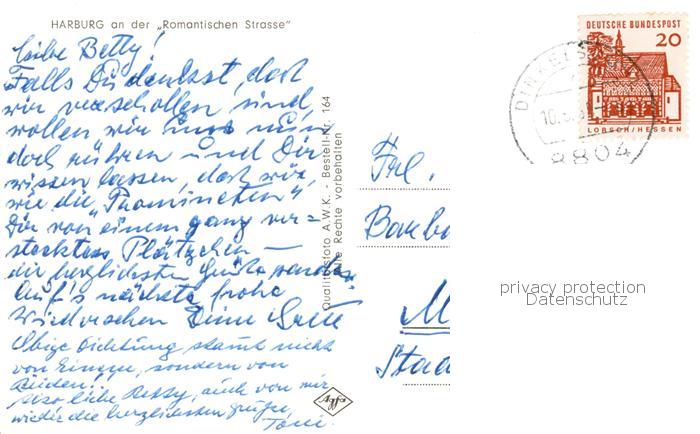 HARBURG an der „Romantischen Strasse"
Liebe Betty!
Falls Du denkst, dass
wir verschollen sind,
wollen wir uns nun
doch rühren und Dir
wissen lassen, dass wir,
wie die "Prominenten"
Dir von einem ganz ver-
steckten Plätzchen —
die herzlichsten Grüße senden.
Auf's nächste frohe
Wiedersehen Deine
Obige Dichtung stammt nicht
von Einem, sondern von
Beiden!!
Also liebe Betty, auch von mir
wieder die herzlichsten Grüße,
Toni.
Qualitätsfoto A.W.K. - Bestell-Nr. 164
Alle Rechte vorbehalten
Agfa
DEUTSCHE BUNDESPOST
20
LORSCH/HESSEN
8804
Frl.
Bamb
M
Stad
privacy protection
Datenschutz